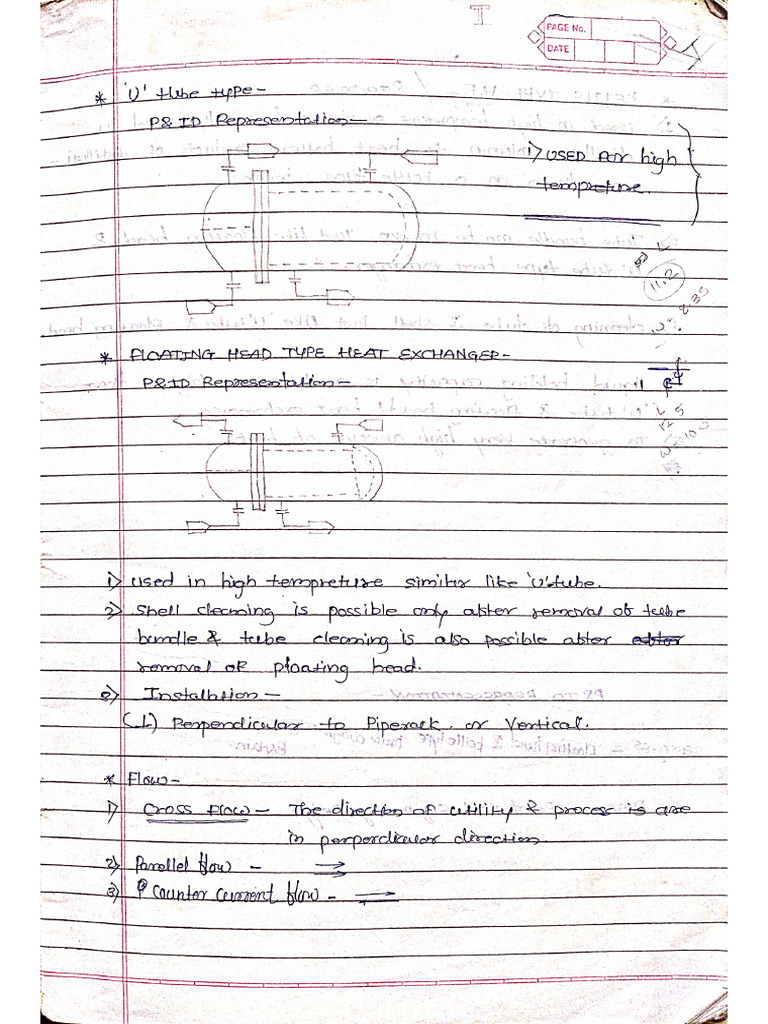 I
PAGE No.
DATE
* 'U' tube type-
P&ID Representation-
1) USED FOR high
tempreture.
11.2
8.35
* FLOATING HEAD TYPE HEAT EXCHANGER-
P&ID Representation-
1) Used in high tempreture similar like 'U' tube.
2) Shell cleaning is possible only after removal of tube
bundle & tube cleaning is also possible after
removal of floating head.
Installation -
(⊥) Perpendicular to Piperack. or Vertical.
* Flow-
1) Cross flow - The direction of utility & process is are
in perpendicular direction.
2) Parallel flow -
3) Counter current flow -